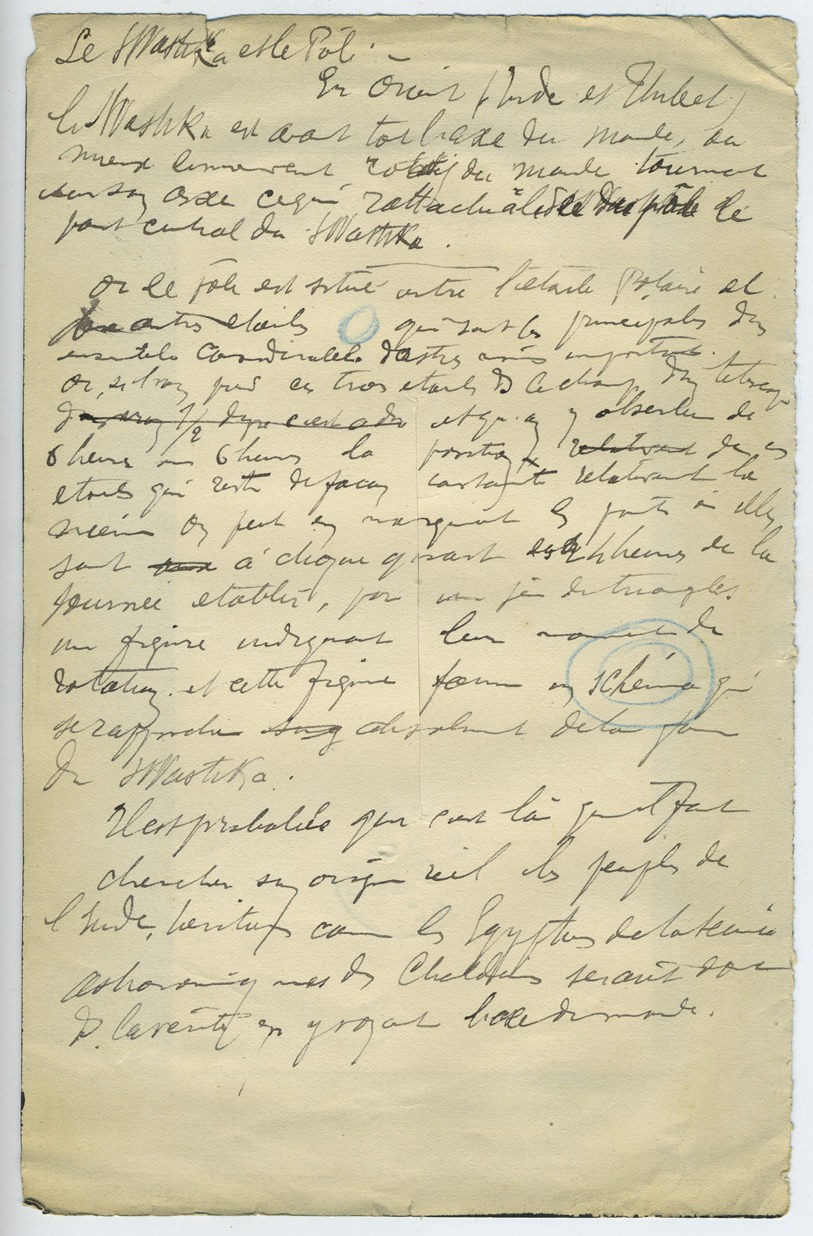 Le SWastiKa et le Pôle. –
En Orient (Inde et Thibet)
le SWastiKa est avant tout l'axe du monde, ou
mieux du monde tournant
sur son axe ce qui rattache à le
point central du SWastiKa.
Or le pôle est situé entre l'étoile Polaire et
autres étoiles qui sont les principales d'un
ensemble considérable d'astres moins importants.
Or, si l'on prend ces trois étoiles
1/2 degré c'est à dire et qu'on y observe de
6 heures en 6 heures la position relative de ces
étoiles qui reste de façon constante relativement la
même on peut en marquant les points où elles
sont à chaque quart des 24 heures de la
journée établir, par un jeu de triangles
une figure indiquant leur de
rotation. et cette figure forme un schéma qui
se rapproche absolument de la forme
du SWastiKa.
Il est probable que c'est là qu'il faut
chercher son origine réel les peuples de
l'Inde, héritiers comme les Egyptiens de la science
astronomique des Chaldéens seraient donc
la vérité en y voyant l'axe du monde.